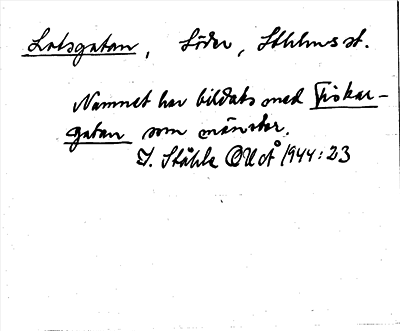 Lotsgatan, Söder, Sthlms st.
Namnet har bildats med Fiskar-
gatan som mönster.
I. Ståhle OUÅ 1944:23